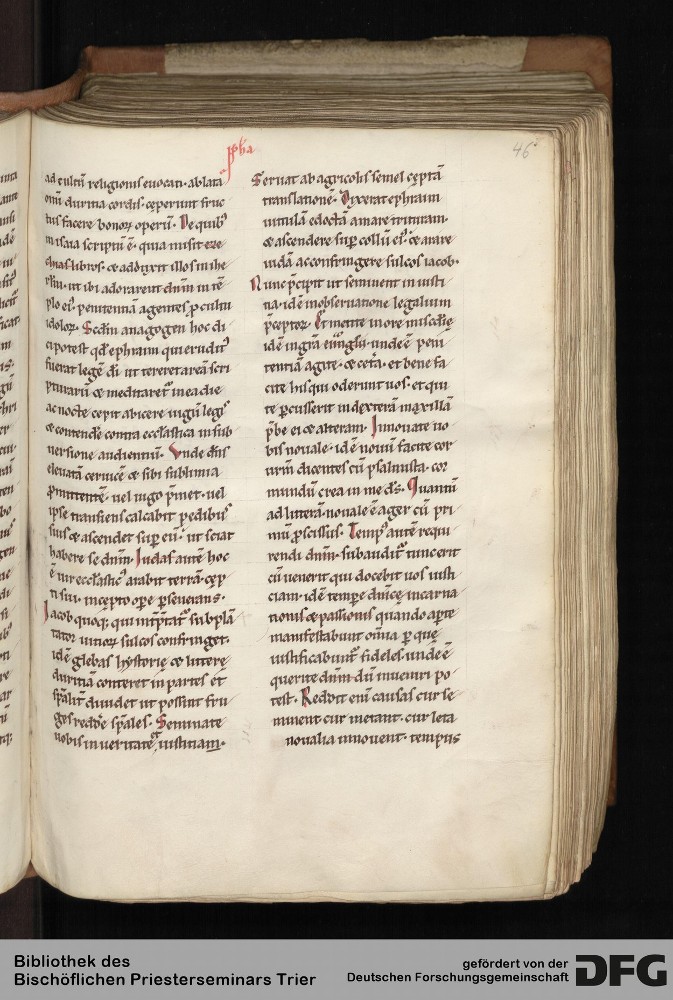 pph̄a
46
ad cultū religionis euocati· ablata
omī duritia cordis· cęperunt fruc
tus facere bonoꝝ operū· De quibꝰ
in isaia scriptū ē· quia misit eze
chias libros· & adduxit illos in ihe
rl̄m· ut ibi adorarent dn̄m in tē
plo eiꝰ· penitentiā agentes ꝓ cultu
idoloꝝ· Scdm̄ anagogen hoc di
ci potest qd̄ ephraim qui eruditꝰ
fuerat legē dī· ut tereret areā scri
pturarū & meditaretꝰ in ea die
ac nocte cepit abicere iugū legis
& contendē contra ecclastica in sub
uersione audientiū· Vnde dn̄s
eleuatā ceruicē & sibi sublimia
ꝓmittentē· uel iugo p̄met· uel
ipse transiens calcabit pedibus
suis & ascendet suꝑ eū· ut sciat
habere se dn̄m· Iudas autē hoc
ē uir ecclasticꝰ arabit terrā· cęp
ti sui· incępto opere ꝑseuerans·
Iacob quoq; qui int̄p̄tatꝰ subplā
tator uitioꝝ sulcos confringet·
idē glebas hystorię & litterę
duritiā conteret in partes et
sp̄alit̄ diuidet ut possint fru
ges reddē sp̄ales· Seminate
uobis in ueritate et iustitiam·
Seruat ab agricolis semel cęptā
translationē· Dixerat ephraim
uitulā edoctā amare trituram·
& ascendere suꝑ collū eiꝰ· & arare
iudā ac confringere sulcos iacob·
Nunc p̄cipit ut seminent in iusti
tia· idē in obseruatione legalium
p̄ceptoꝝ· Et metite in ore misc̄dię
idē in gr̄a euu̅glii· unde ē peni
tentiā agite· & cet̄a· et bene fa
cite his qui oderunt uos· et qui
te ꝑcusserit in dexterā maxillā
p̄be ei & alteram· Innouate uo
bis nouale· idē nouū facite cor
ur̄m dicentes cū psalmista· cor
mundū crea in me ds̄· Quantū
ad litterā nouale ē ager cū pri
mū ꝓscissus· Tempꝰ autē requi
rendi dn̄m· subauditꝰ tunc erit
cū uenerit qui docebit uos iusti
ciam· idē tempore dn̄icę incarna
tionis & passionis quando aperte
manifestabunt om̄ia ꝑ quę
iustificabunt̄ fideles· unde ē
querite dn̄m dū inueniri po
test· Reddit eni causas cur se
minent cur metant· cur leta
noualia innouent· tempus
Bibliothek des
Bischöflichen Priesterseminars Trier
gefördert von der
Deutschen Forschungsgemeinschaft
DFG